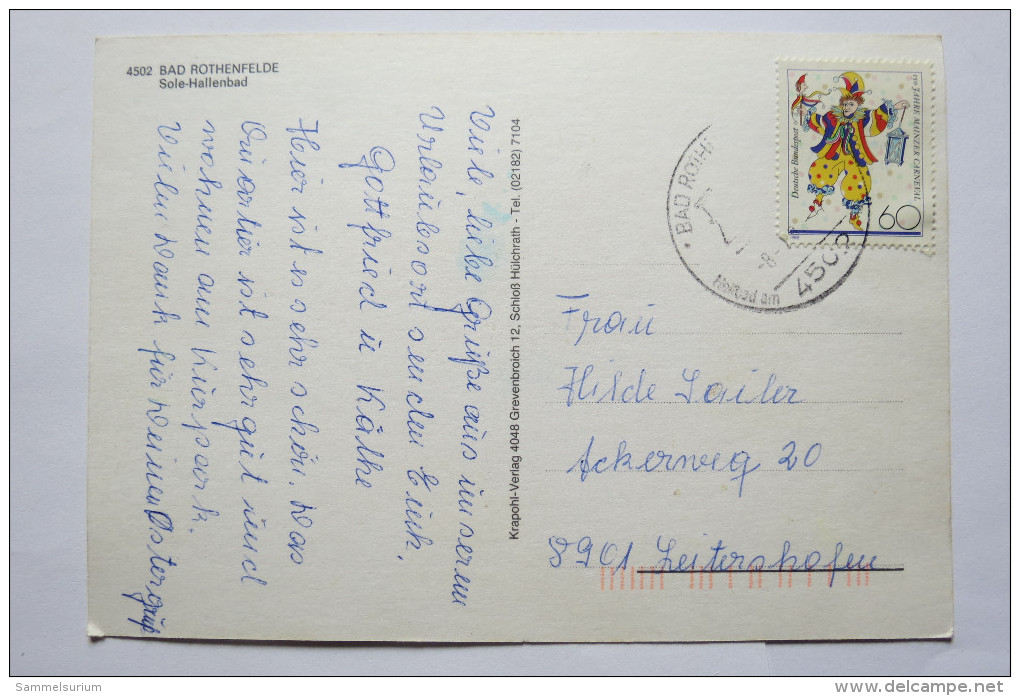 4502 BAD ROTHENFELDE
Sole-Hallenbad
Viele, liebe Grüße aus unserem
Urlaubsort senden Euch,
Gottfried u Käthe
Hier ist es sehr schön. Das
Quartier ist sehr gut und
wohnen am Kurpark.
Vielen Dank für Deinen Ostergruß
Krapohl-Verlag 4048 Grevenbroich 12, Schloß Hülchrath - Tel. (02182) 7104
150 JAHRE MAINZER CARNEVAL
Deutsche Bundespost
60
BAD ROTH
-8.
4502
Heilbad am
Frau
Hilde Sailer
Ackerweg 20
8901 Leitershofen
Sammelsurium
www.delcampe.net